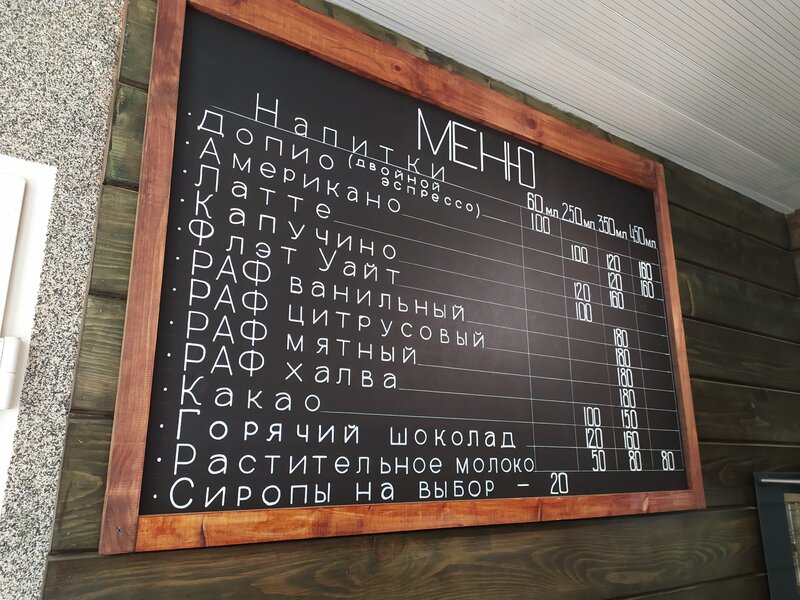 МЕНЮ
Напитки 60 мл 250 мл 350 мл 450 мл
· Допио (двойной эспрессо) 100
· Американо 100 120 160
· Латте 120 160
· Капучино 120 160
· Флэт уайт 100
· РАФ ванильный 180
· РАФ цитрусовый 180
· РАФ мятный 180
· РАФ халва 180
· Какао 100 150
· Горячий шоколад 120 160
· Растительное молоко 50 80 80
· Сиропы на выбор – 20